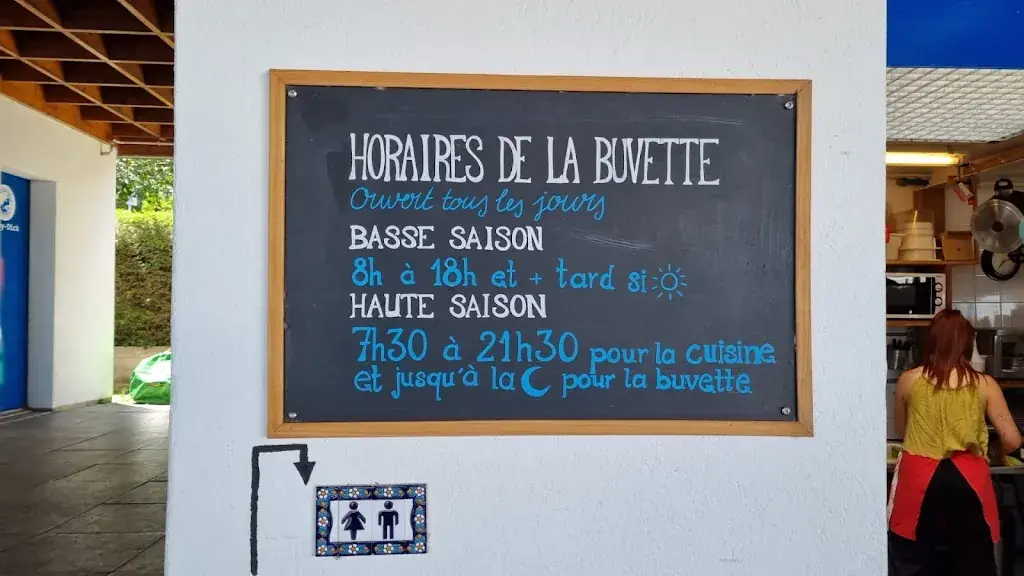 HORAIRES DE LA BUVETTE
Ouvert tous les jours
BASSE SAISON
8h à 18h et + tard si
HAUTE SAISON
7h30 à 21h30 pour la cuisine
et jusqu'à la pour la buvette